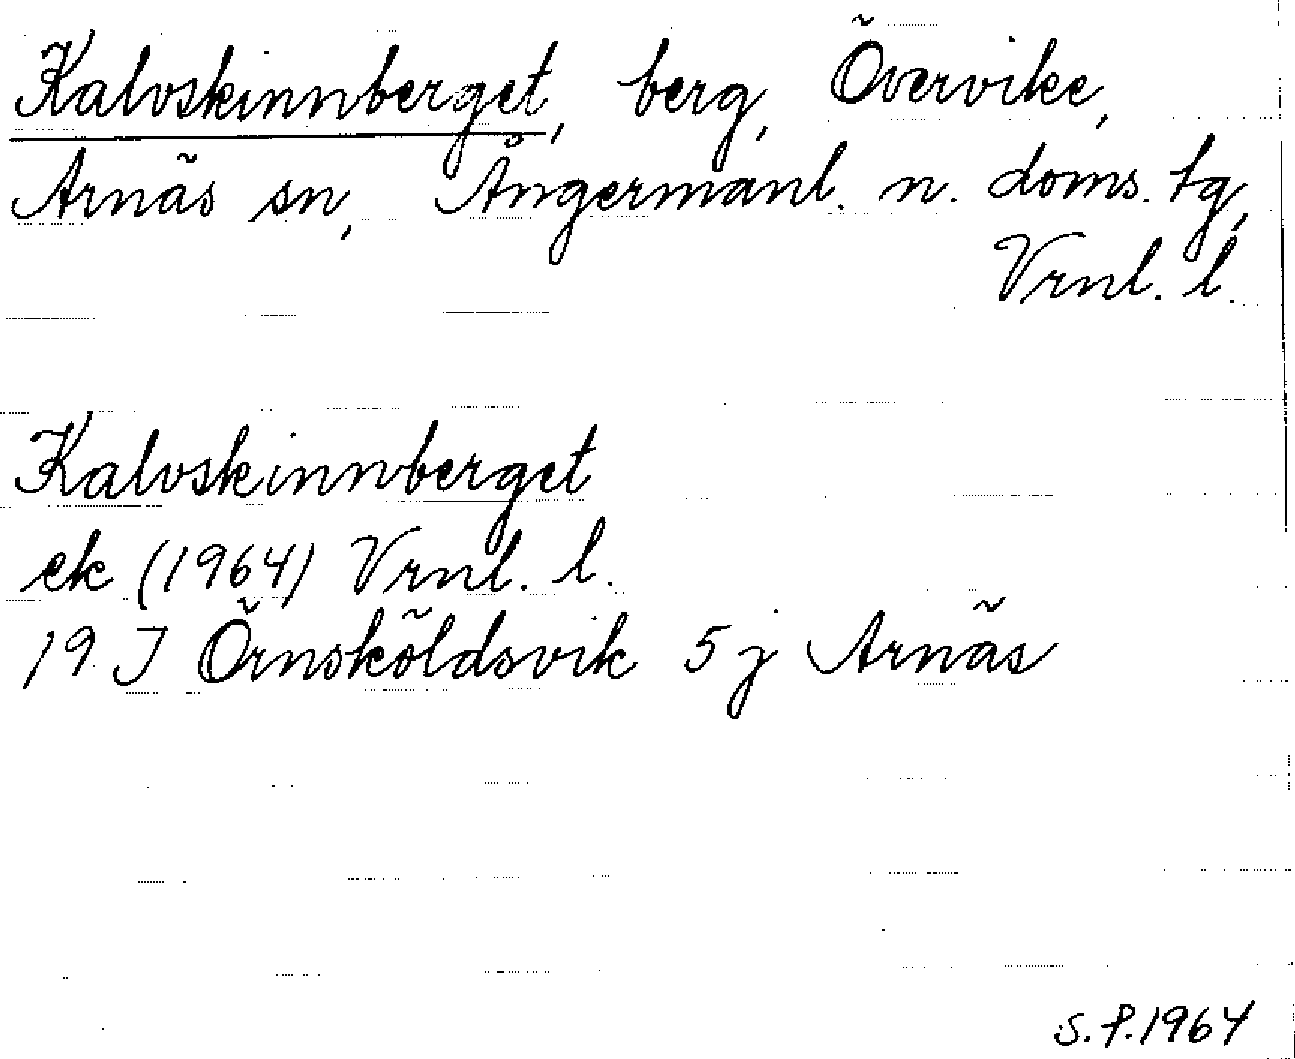 Kalvskinnberget, berg, Övervike,
Arnäs sn, Ångermanl. n. doms. tg,
Vrnl. l.
Kalvskinnberget
ek (1964) Vrnl. l.
19 J Örnsköldsvik 5 j Arnäs
S.P.1964